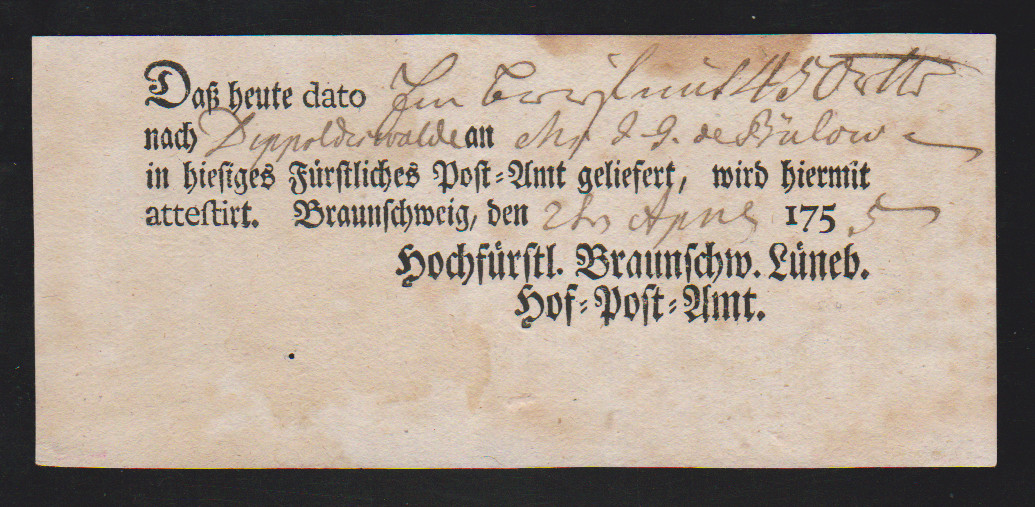 Daß heute dato Ein Brief mit 450 rth
nach Dippoldiswalde an Mr J. G. de Bülow
in hiesiges Fürstliches Post-Amt geliefert, wird hiermit
attestirt. Braunschweig, den 2ten April 1755
Hochfürstl. Braunschw. Lüneb.
Hof-Post-Amt.